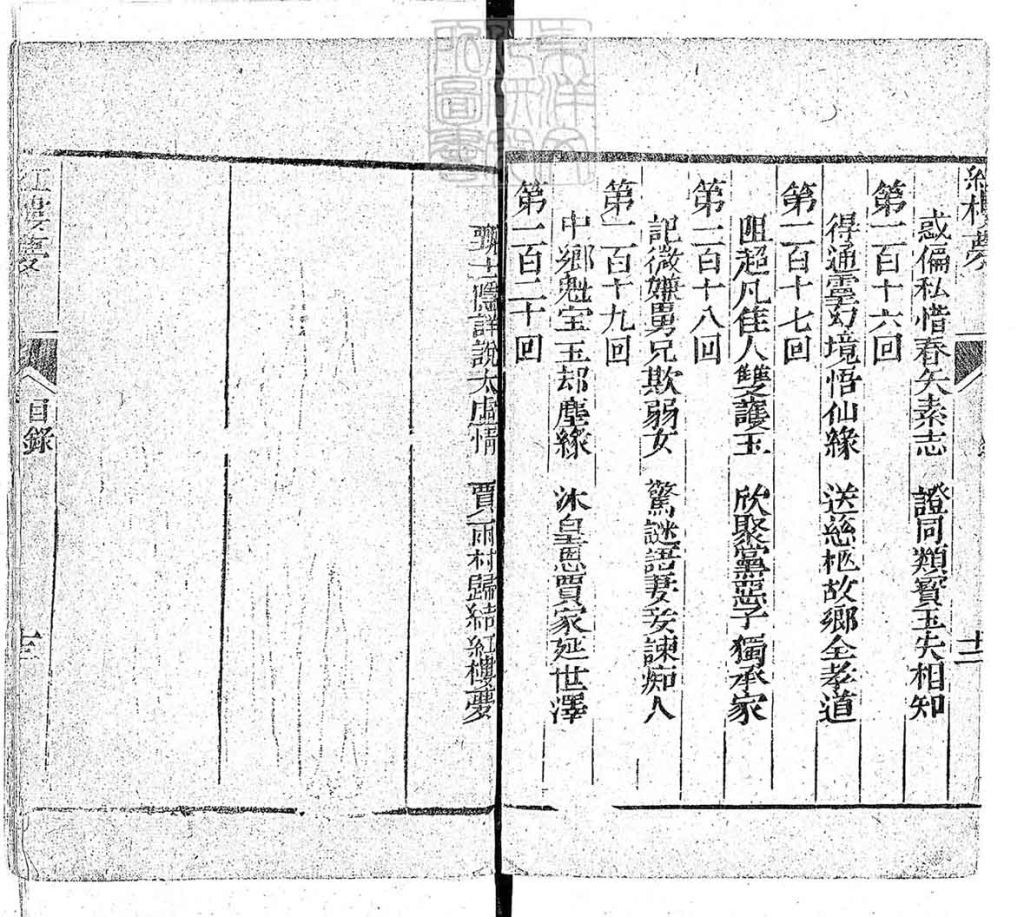 紅樓夢
十二
惑偏私惜春矢素志 證同類寳玉失相知
第一百十六回
得通靈幻境悟仙緣 送慈柩故鄉全孝道
第一百十七回
阻超凡佳人雙護玉 欣聚黨惡子獨承家
第一百十八回
記微嫌舅兄欺弱女 驚謎語妻妾諫痴人
第一百十九回
中鄉魁宝玉却塵緣 沐皇恩賈家延世澤
第一百二十回
甄士隱詳說太虛情 賈雨村歸結紅樓夢
紅樓夢
目錄